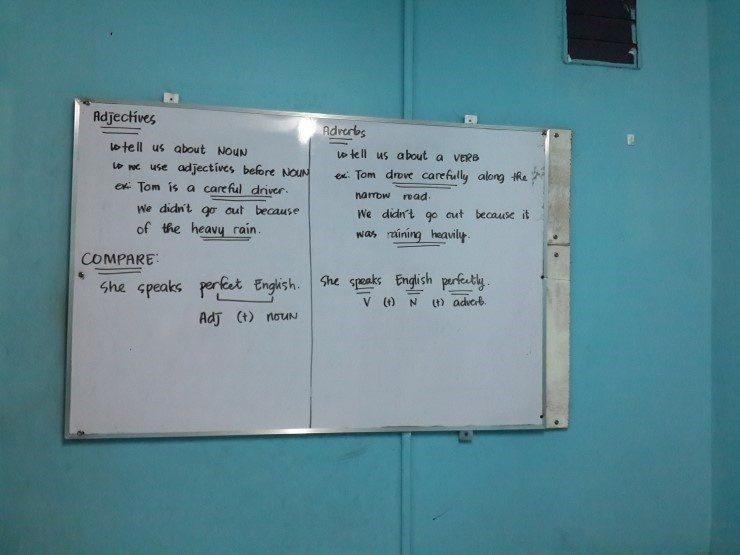 Adjectives
↳ tell us about NOUN
↳ we use adjectives before NOUN
ex: Tom is a careful driver.
We didn't go out because
of the heavy rain.
COMPARE:
She speaks perfect English.
Adj (+) NOUN
Adverbs
↳ tell us about a VERB
ex: Tom drove carefully along the
narrow road.
We didn't go out because it
was raining heavily.
She speaks English perfectly.
V (+) N (+) adverb.